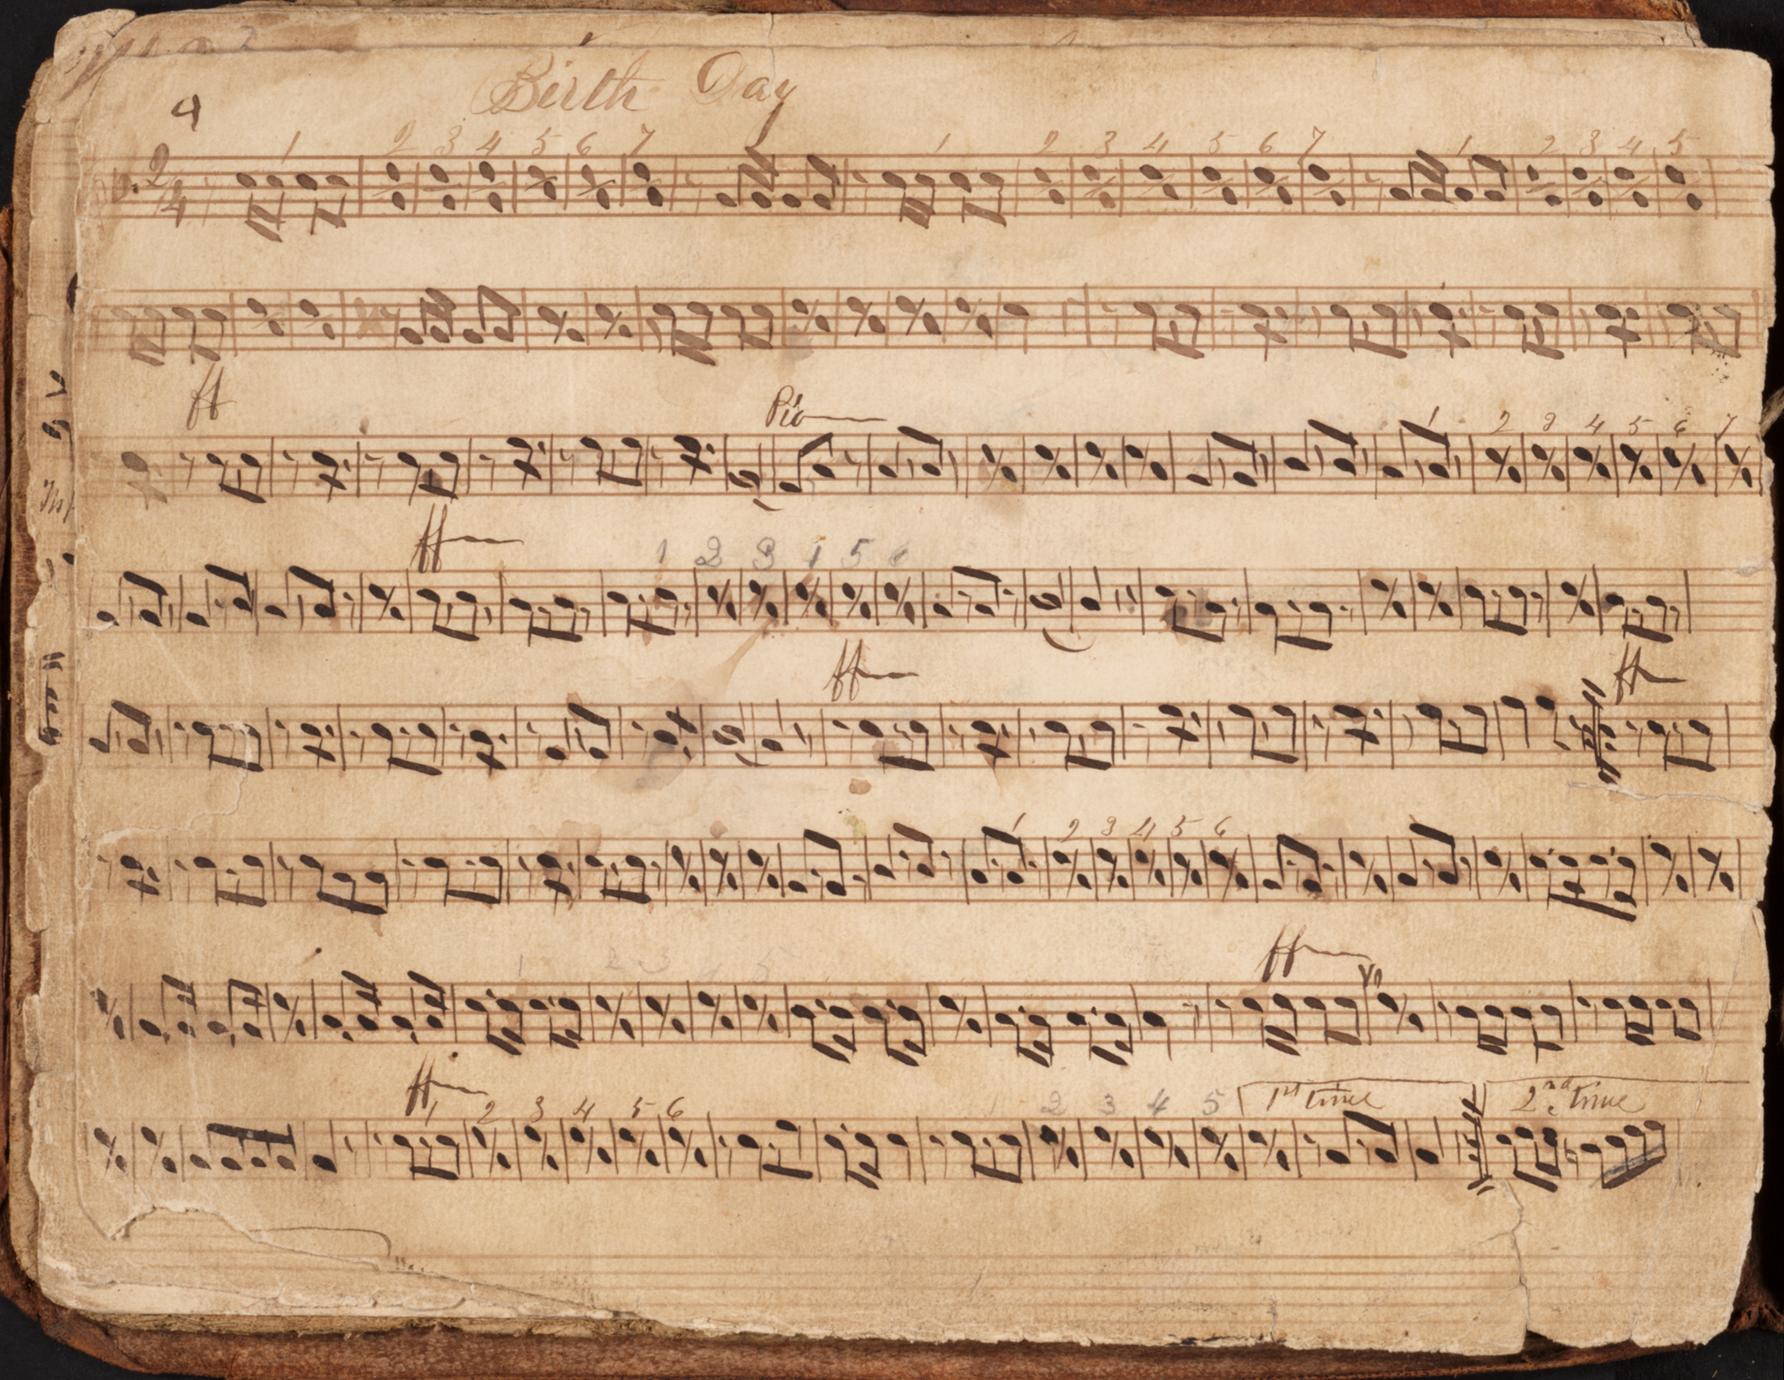 Birth Day
4
1 2 3 4 5 6 7 1 2 3 4 5 6 7 1 2 3 4 5
2
4
ff
Pio
1 2 3 4 5 6 7
ff
1 2 3 4 5 6
ff ff
1 2 3 4 5 6
1 2 3 4 5
ff
ff
1 2 3 4 5 6 1 2 3 4 5 1st time 2nd time